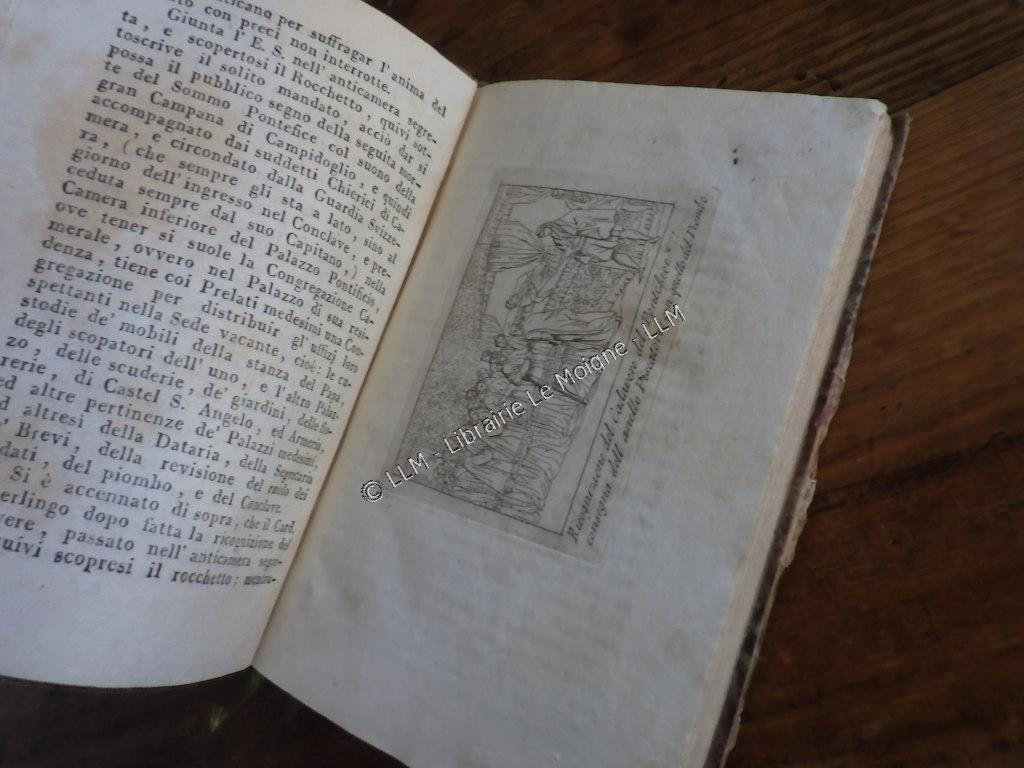 per suffragar l'anima del
con preci non interrotte.
Giunta l'E. S. nell'anticamera segre-
ta, e scopertosi il Rocchetto, quivi sot-
toscrive il solito mandato, acciò dar si
possa il pubblico segno della seguita mor-
te del Sommo Pontefice col suono della
gran Campana di Campidoglio, e quindi
accompagnato dai suddetti Chierici di Ca-
mera, e circondato dalla Guardia Svizze-
ra, (che sempre gli sta a lato, sino al
giorno dell'ingresso nel Conclave, e pre-
ceduta sempre dal suo Capitano,) nella
Camera inferiore del Palazzo Pontificio,
ove tener si suole la Congregazione Ca-
merale, ovvero nel Palazzo di sua resi-
denza, tiene coi Prelati medesimi una Con-
gregazione per distribuir gl'uffizj loro
spettanti nella Sede vacante, cioè: le cu-
stodie de' mobili della stanza del Papa,
degli scopatori dell'uno, e l'altro Palaz-
zo, delle scuderie, de' giardini, delle fo-
rerie, di Castel S. Angelo, ed Armeria,
ed altre pertinenze de' Palazzi medesimi,
altresì della Dataria, della Segretaria
Brevi, della revisione del ruolo dei
del piombo, e del Conclave.
Si è accennato di sopra, che il Card.
dopo fatta la ricognizione del
passato nell'anticamera segre-
quivi scopresi il rocchetto: mentre-
Ricognizione del cadavere del Pontefice e
consegna dell'anello Piscatorio, e quello del Piombo
© LLM - Librairie Le Moigne - LLM